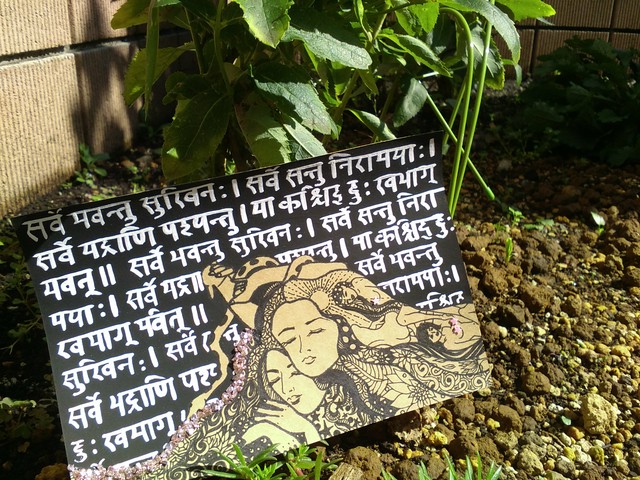 सर्वे भवन्तु सुखिनः । सर्वे सन्तु निरामयाः ।
सर्वे भद्राणि पश्यन्तु । मा कश्चिद् दुः खभाग्
भवेत् ॥ सर्वे भवन्तु सुखिनः । सर्वे सन्तु निरा
मयाः । सर्वे भद्रा पश्यन्तु । मा कश्चिद् दुः
खभाग् भवेत् ॥ सर्वे भवन्तु
सुखिनः । सर्वे रामयाः ।
सर्वे भद्राणि पश्य कश्चिद्
दुः खभाग्